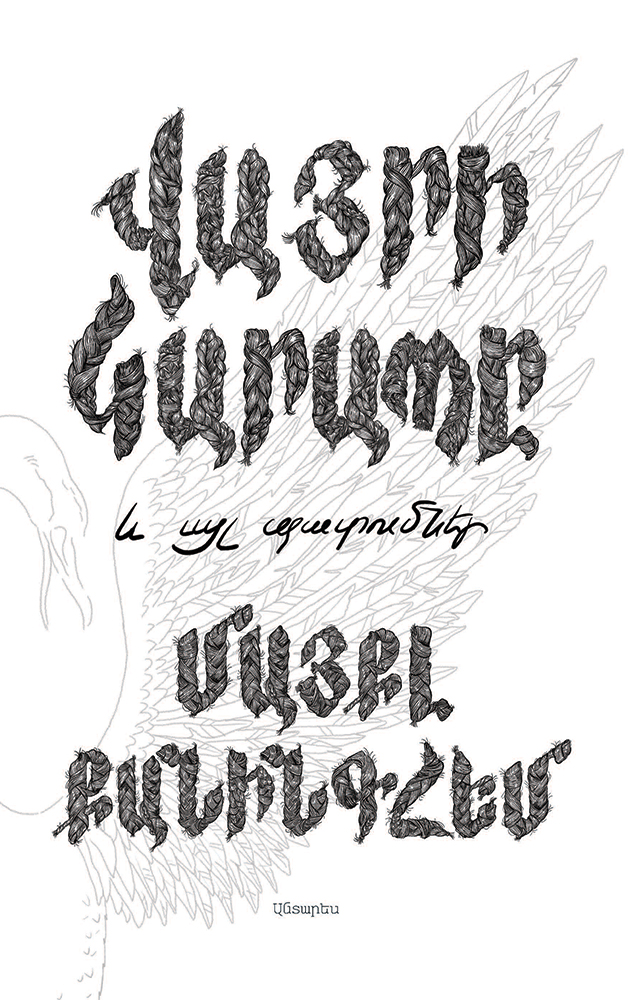 Վայրի
Կարապը
և այլ պատմումներ
ՄԱՅՔԼ
ՔԱՆԻՆԳՀԵՄ
Անտարես